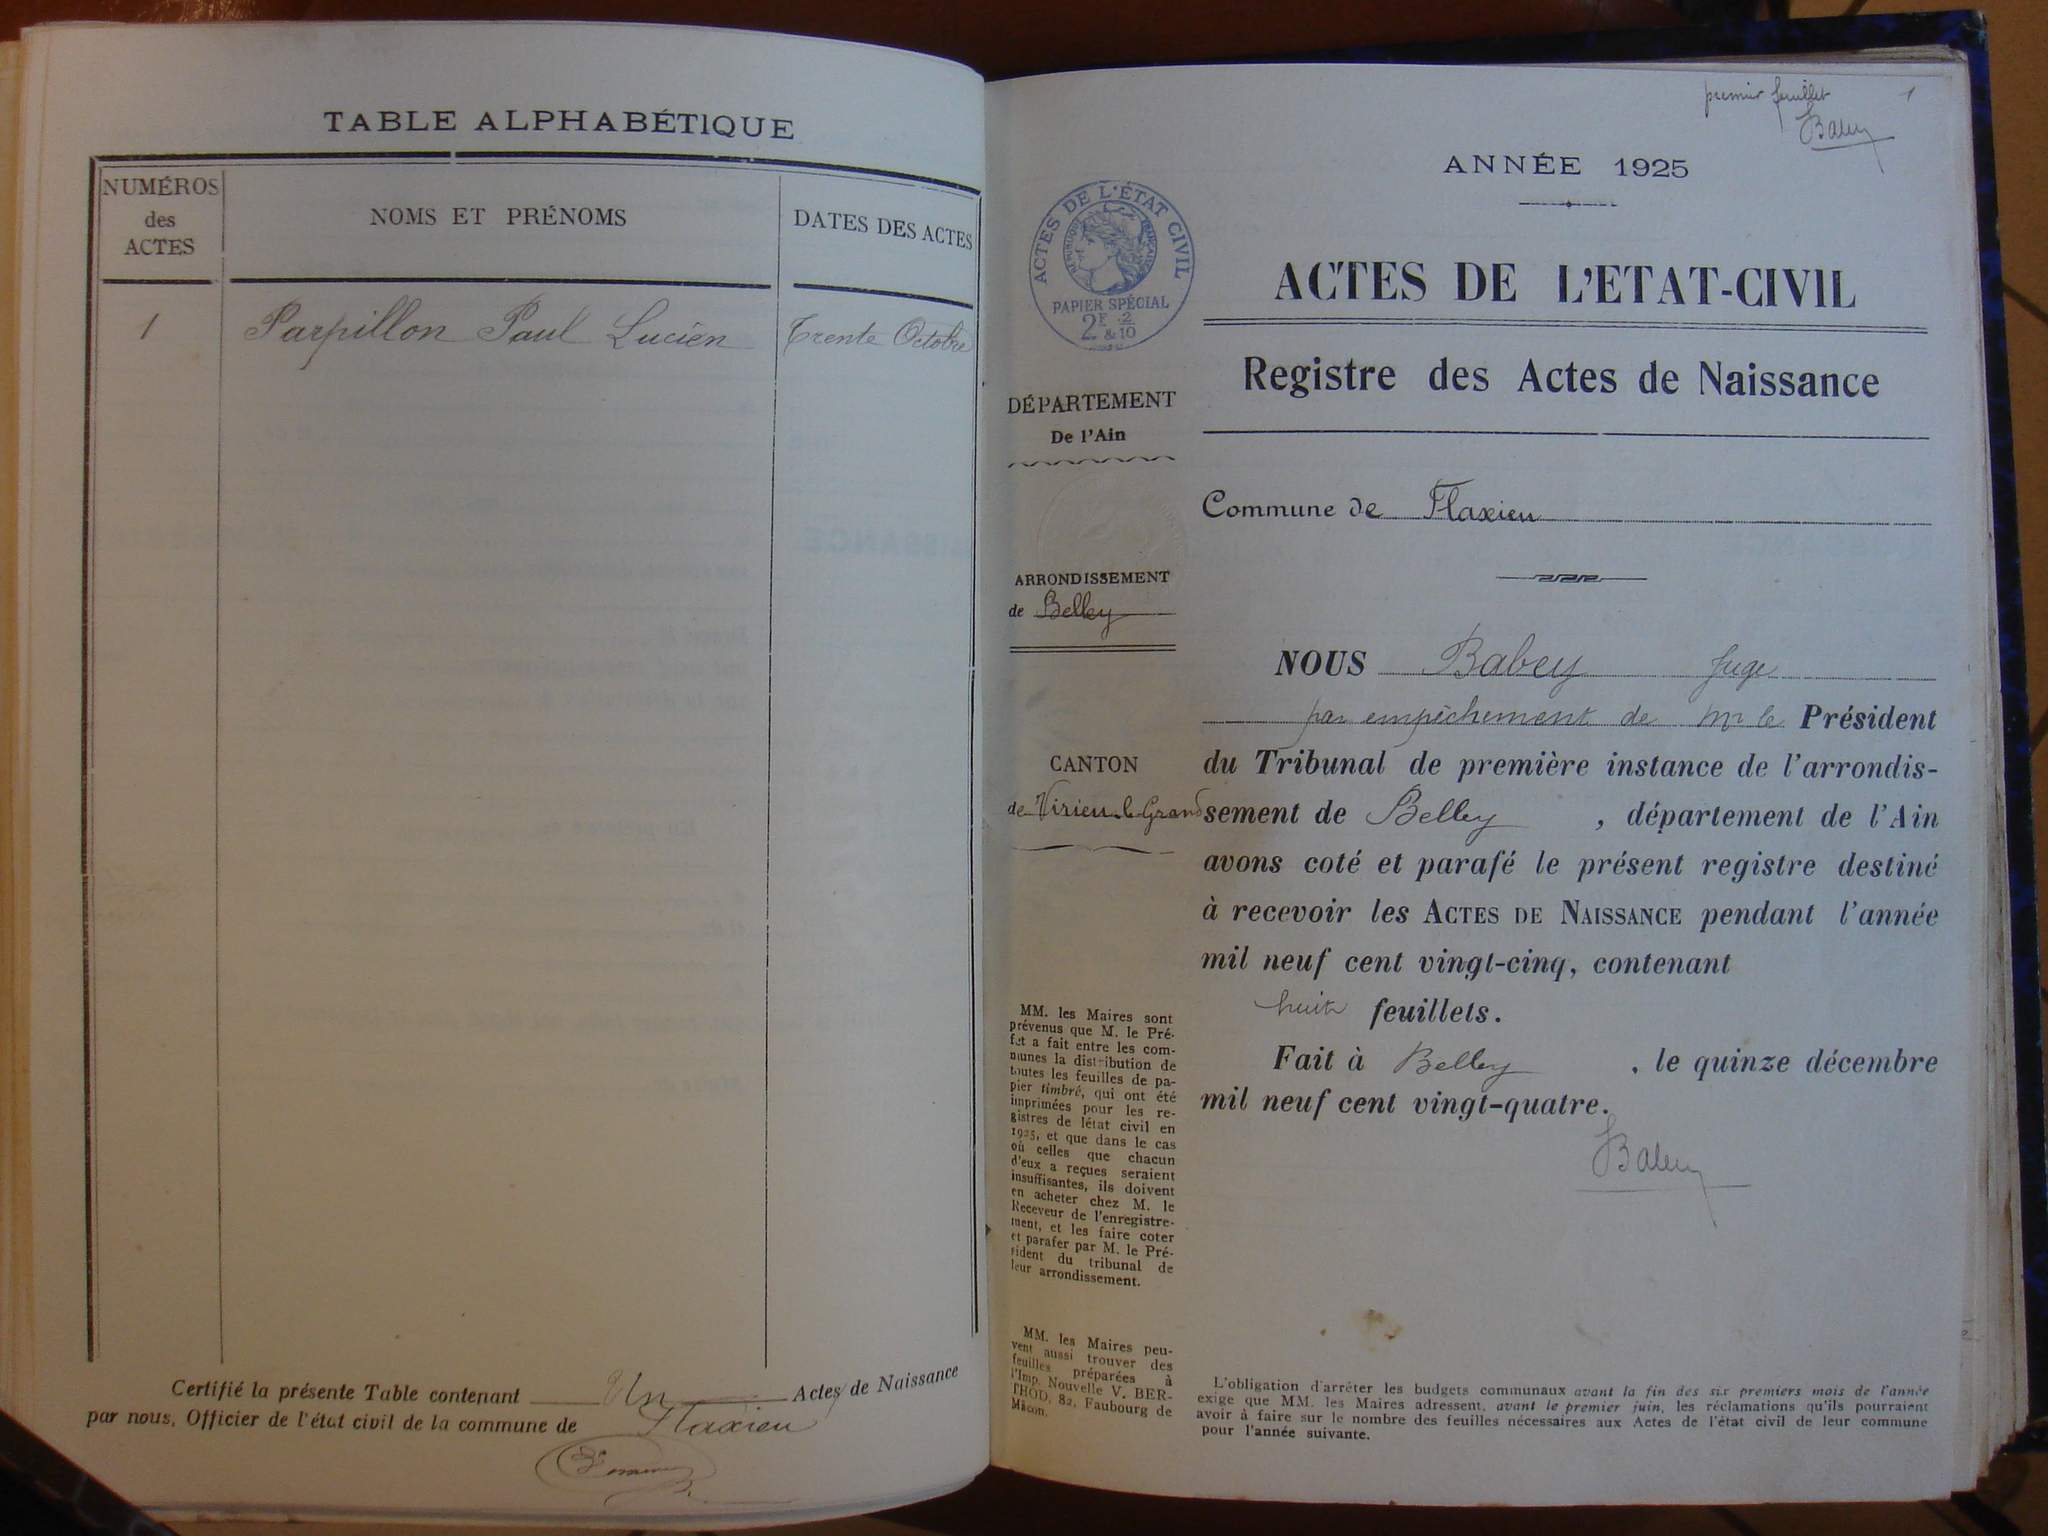 TABLE ALPHABÉTIQUE
NUMÉROS
des
ACTES
NOMS ET PRÉNOMS
DATES DES ACTES
1
Parpillon Paul Lucien
Trente Octobre
Certifié la présente Table contenant Un Actes de Naissance
par nous, Officier de l'état civil de la commune de Flaxieu
premier feuillet
1
Babey
ANNÉE 1925
ACTES DE L'ÉTAT CIVIL
RÉPUBLIQUE FRANÇAISE
PAPIER SPÉCIAL
2F 2
& 10
DÉPARTEMENT
De l'Ain
ARRONDISSEMENT
de Belley
CANTON
de Virieu-le-Grand
MM. les Maires sont
prévenus que M. le Pré-
fet a fait entre les com-
munes la distribution de
toutes les feuilles de pa-
pier timbré, qui ont été
imprimées pour les re-
gistres de létat civil en
1925, et que dans le cas
où celles que chacun
d'eux a reçues seraient
insuffisantes, ils doivent
en acheter chez M. le
Receveur de l'enregistre-
ment, et les faire coter
et parafer par M. le Pré-
sident du tribunal de
leur arrondissement.
MM. les Maires peu-
vent aussi trouver des
feuilles préparées à
l'Imp. Nouvelle V. BER-
THOD, 82, Faubourg de
Mâcon.
ACTES DE L'ETAT-CIVIL
Registre des Actes de Naissance
Commune de Flaxieu
NOUS Babey Juge
par empêchement de Mr le Président
du Tribunal de première instance de l'arrondis-
sement de Belley , département de l'Ain
avons coté et parafé le présent registre destiné
à recevoir les ACTES DE NAISSANCE pendant l'année
mil neuf cent vingt-cinq, contenant
huit feuillets.
Fait à Belley , le quinze décembre
mil neuf cent vingt-quatre.
Babey
L'obligation d'arrêter les budgets communaux avant la fin des six premiers mois de l'année
exige que MM. les Maires adressent, avant le premier juin, les réclamations qu'ils pourraient
avoir à faire sur le nombre des feuilles nécessaires aux Actes de l'état civil de leur commune
pour l'année suivante.